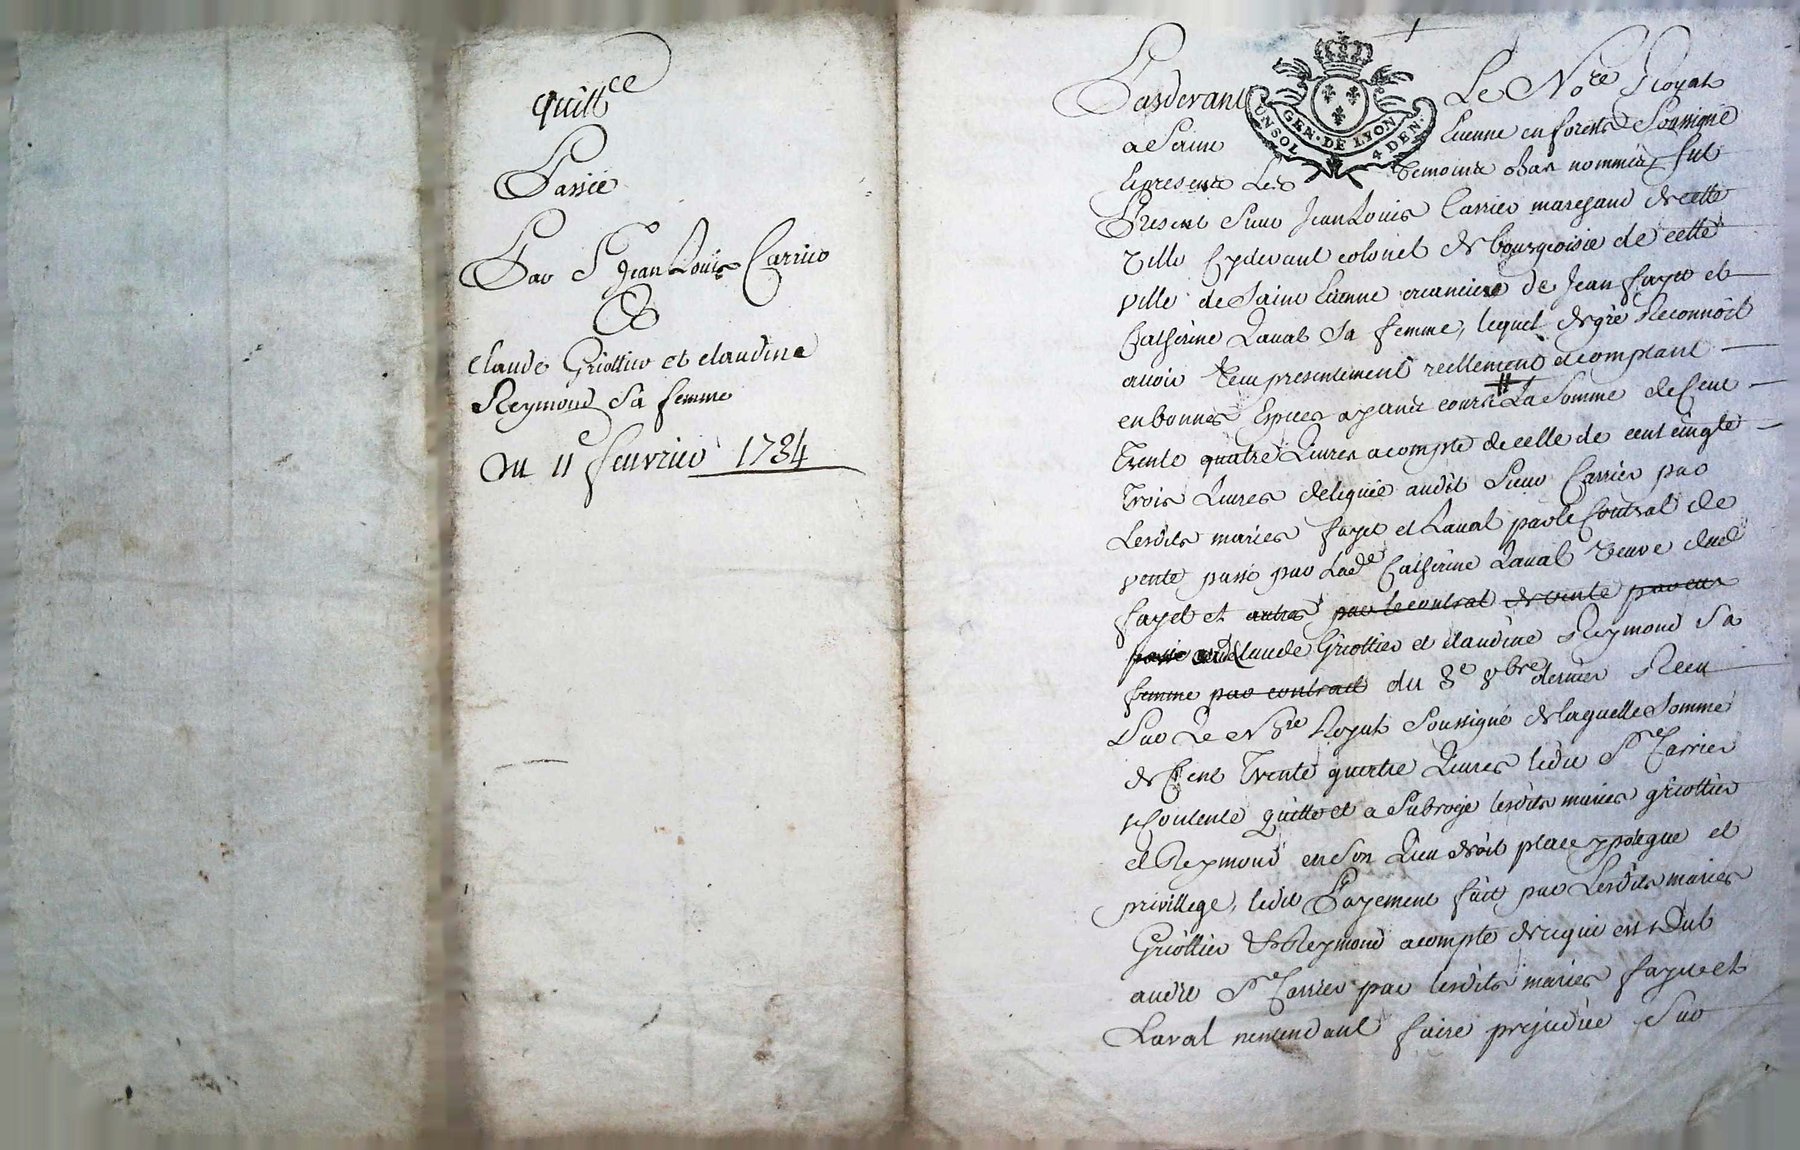 quitt.ce
Passée
Par Sr Jean Louis Carrier
a
Claude Griottier et claudine
Reymond Sa femme
Du 11e feuvrier 1784
UN SOL
GEN. DE LYON
4 DEN.
Pardevant Le No.re Royal
a Saint Etienne en forests Soussigné
Et presents Les temoins abas nommés fut
Present Sieur Jean Louis Carrier marchand de cette
Ville Cydevant colonel de bourgeoisie de cette
ville de Saint Etienne creancier de Jean fayet et
Catherine Laval Sa femme, lequel de gré Reconnoit
avoir Reçu presentement réellement et comptant
en bonnes Especes ayants cours # La Somme de Cent
Trente quatre Livres acompte de celle de cent cinq.te
Trois Livres deleguée audit Sieur Carrier par
Lesdits mariés fayet et Laval par le Contrat de
vente passé par Lad.e Catherine Laval veuve dud.
fayet et autres par le contrat de vente par eux
passé aud Claude Griottier et claudine Reymond Sa
femme par contrat du 8e 8bre dernier Reçu
Par Le No.re Royal Soussigné de laquelle Somme
de Cent Trente quatre Livres ledit Sr Carrier
Contente quitte et a Subrogé lesdits mariés griottier
et Reymond en Son Lieu droit place ypoteque et
privillege, ledit Payement fait par Lesdits mariés
Griottier et Reymond acompte de ce qui est dub
audit Sr Carrier par lesdits mariés fayet et
Laval nentendant faire prejudice Sur